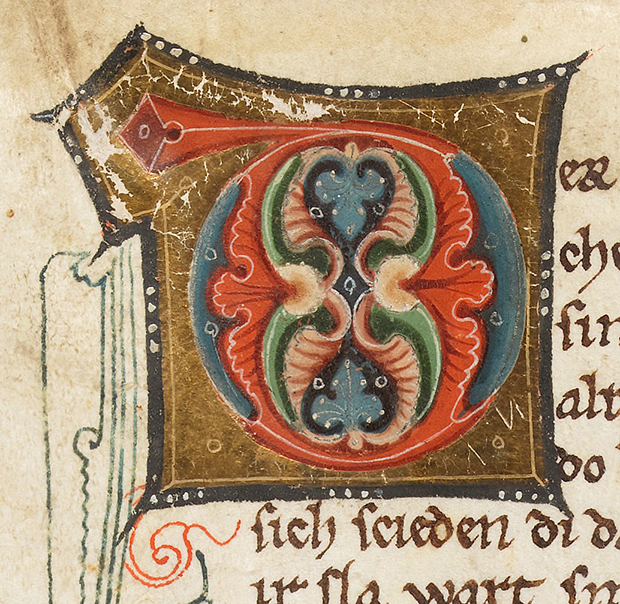 Der
che
sin
alt
do
sich scieden di d
ir sla wart sm